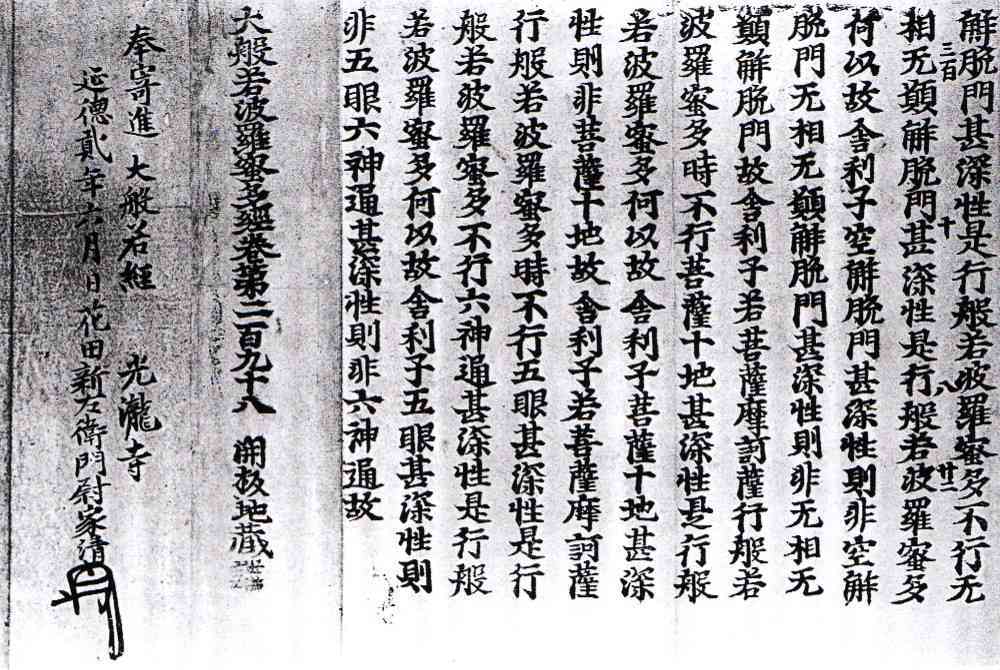 解脱門甚深性是行般若波羅蜜多不行无
三百 十 八 廿二
相无顛解脱門甚深性是行般若波羅蜜多
何以故舎利子空解脱門甚深性則非空解
脱門无相无顛解脱門甚深性則非无相无
顛解脱門故舎利子若菩薩摩訶薩行般若
波羅蜜多時不行菩薩十地甚深性是行般
若波羅蜜多何以故舎利子菩薩十地甚深
性則非菩薩十地故舎利子若菩薩摩訶薩
行般若波羅蜜多時不行五眼甚深性是行
般若波羅蜜多不行六神通甚深性是行般
若波羅蜜多何以故舎利子五眼甚深性則
非五眼六神通甚深性則非六神通故
大般若波羅蜜多經巻第二百九十八 開板地蔵
奉寄進 大般若經 光瀧寺
延徳貳年六月日花田新左衛門尉家清